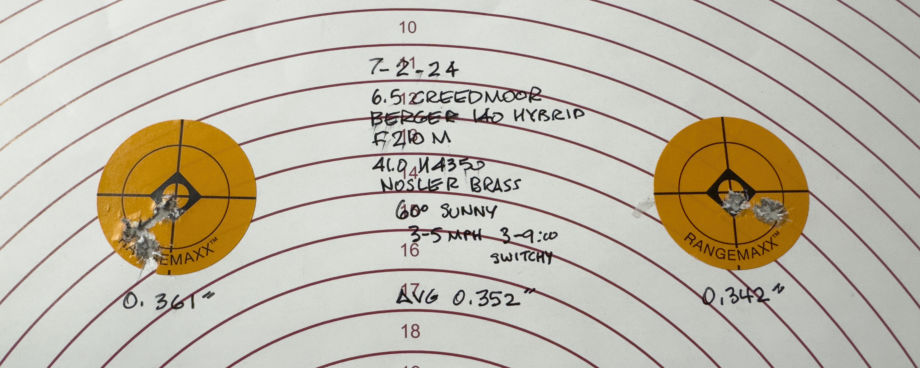 10
11
7-2-24
12
6.5 CREEDMOOR
BERGER 140 HYBRID
F210M
41.0 H4350
14
NOSLER BRASS
60° SUNNY
3-5 MPH 3-9:00
16
SWITCHY
EMAXX™
RANGEMAXX™
0.361"
17
AVG 0.352"
0.342"
18